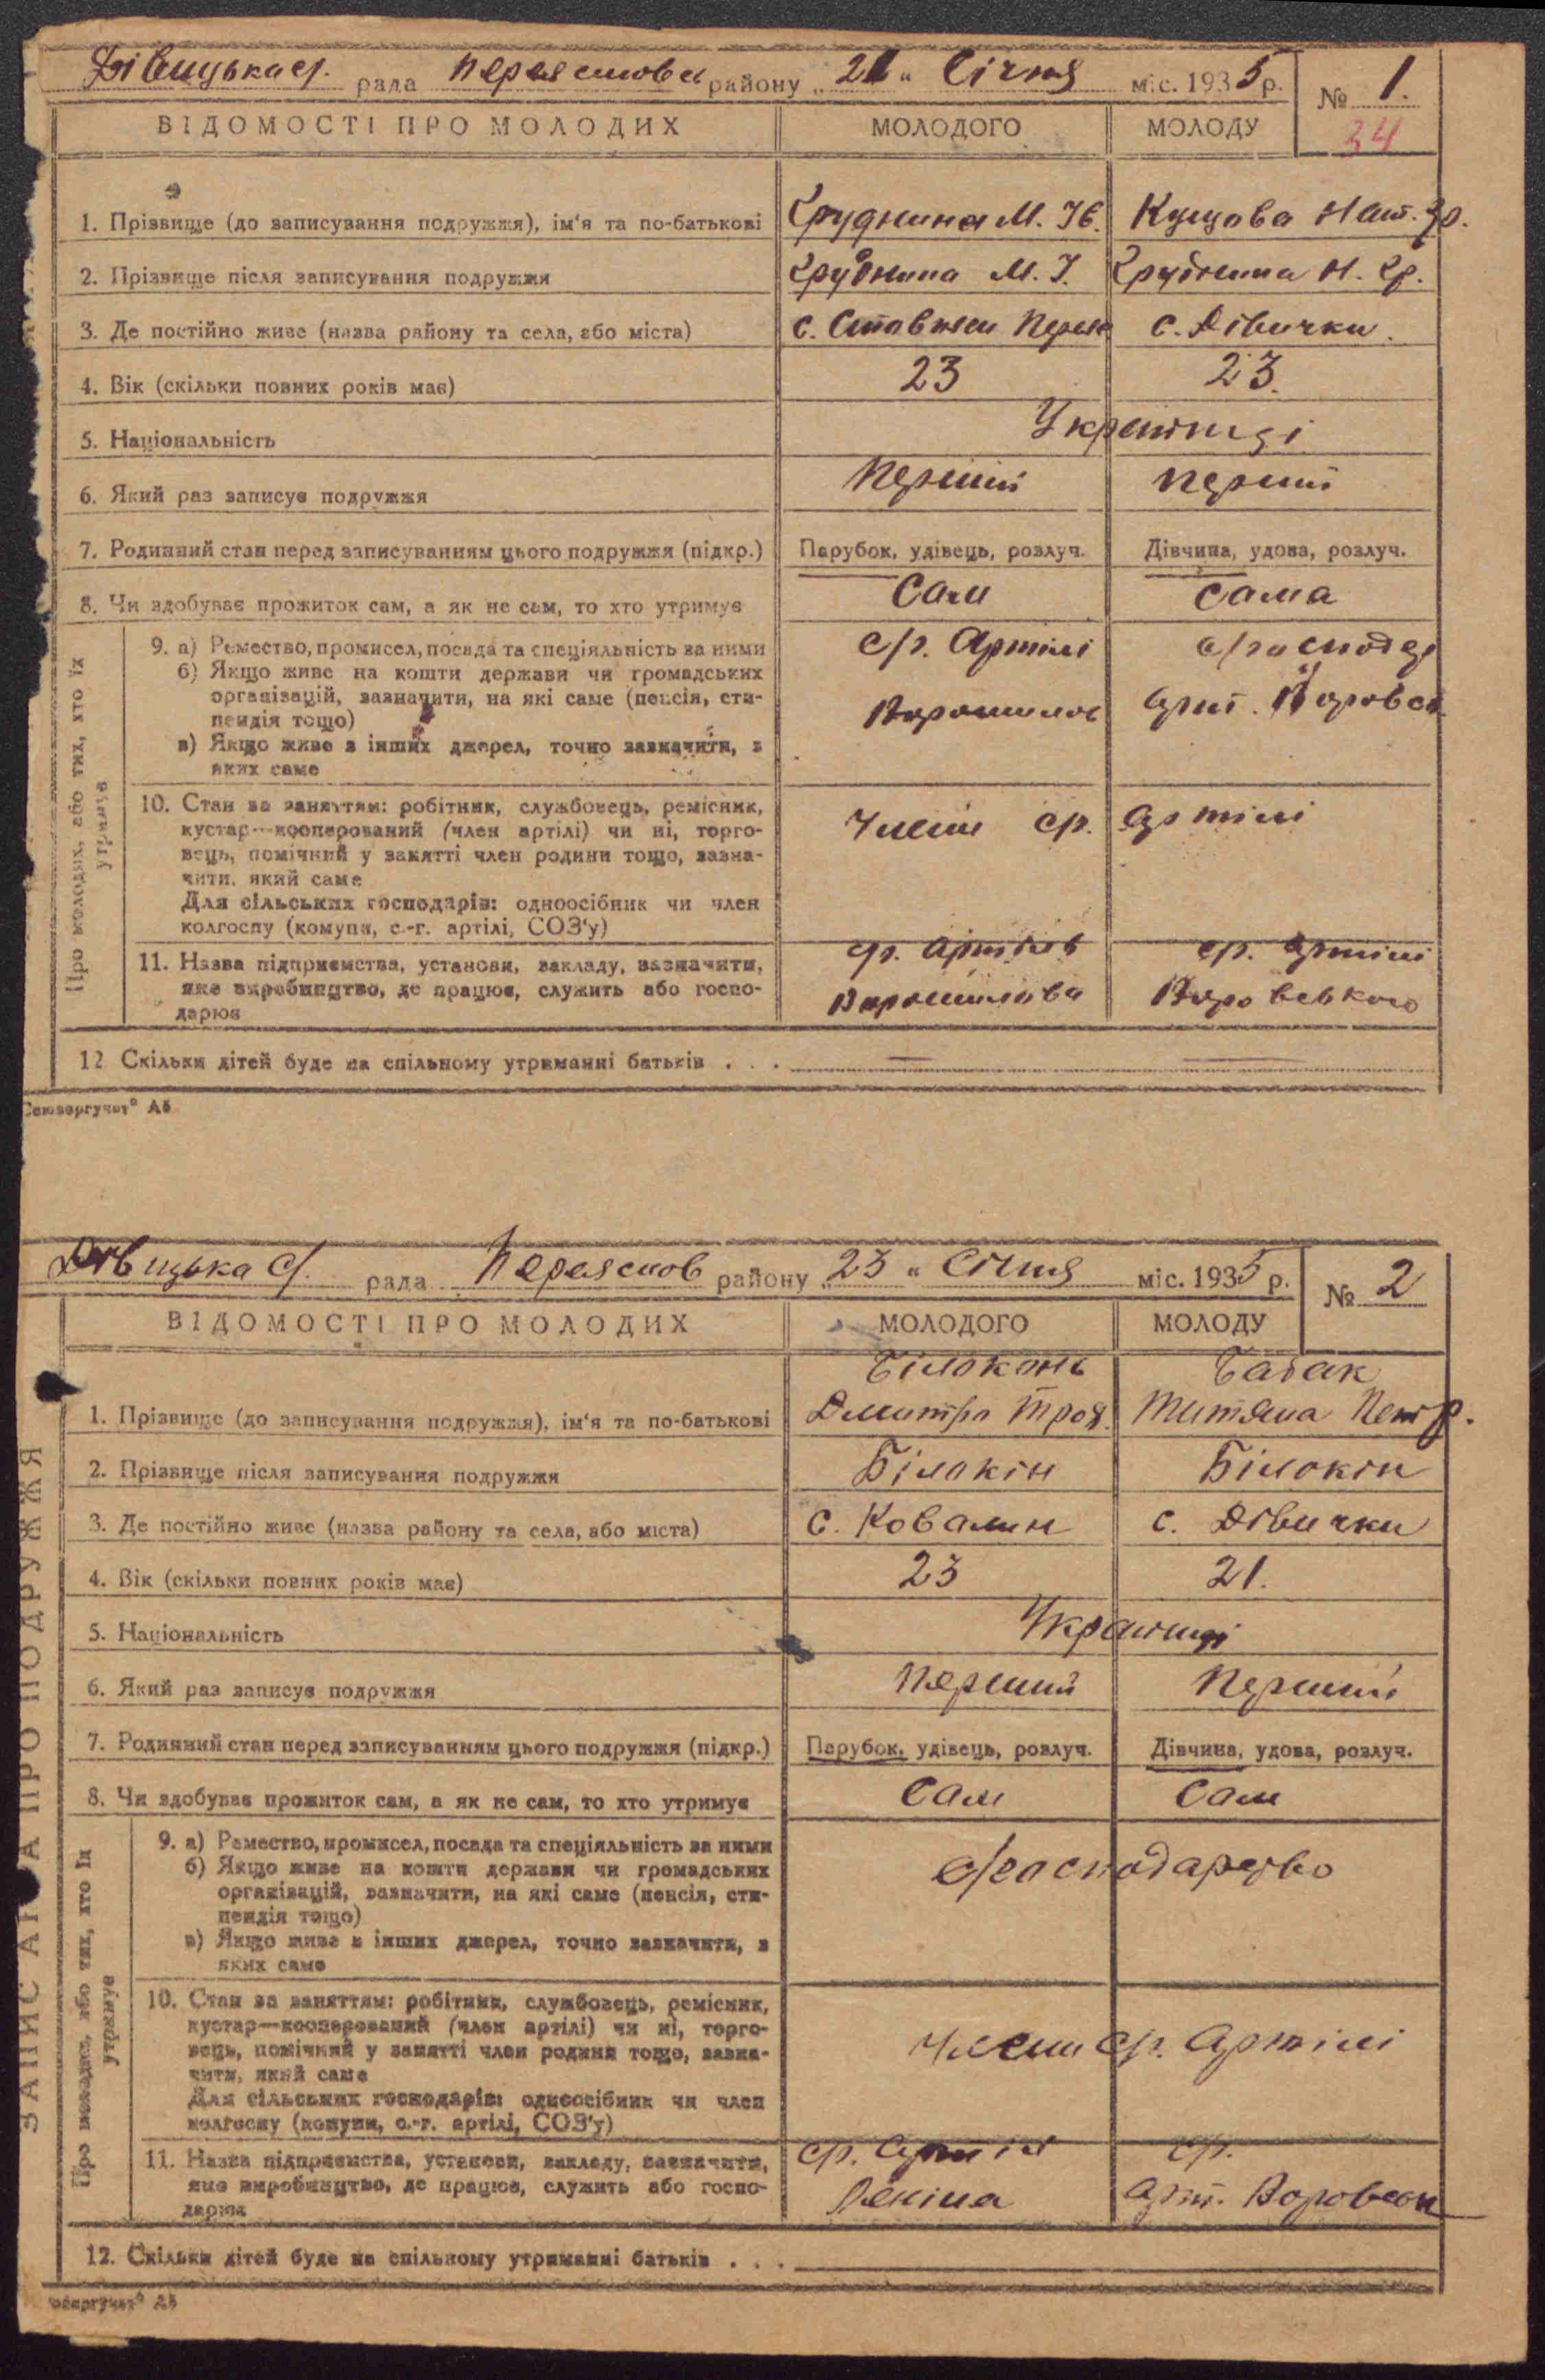 Дівицька с/. рада Переяслова району „21" Січня міс. 1935 р. № 1.
34
ВІДОМОСТІ ПРО МОЛОДИХ МОЛОДОГО МОЛОДУ
1. Прізвище (до записування подружжя), ім'я та по-батькові Груднина М. Ів. Куцова Нат. Гр.
2. Прізвище після записування подружжя Груднина М. І. Груднина Н. Гр.
3. Де постійно живе (назва району та села, або міста) с. Стовпяги Переяс с. Дівички.
4. Вік (скільки повних років має) 23 23.
5. Національність Українці
6. Який раз записує подружжя Перший перший
7. Родинний стан перед записуванням цього подружжя (підкр.) Парубок, удівець, розлуч. Дівчина, удова, розлуч.
8. Чи здобуває прожиток сам, а як не сам, то хто утримує Сам сама
Про молодих, або тих, хто їх утримує
9. а) Ремество, промисел, посада та спеціяльність за ними с/г. Артілі с/господар
б) Якщо живе на кошти держави чи громадських
організацій, зазначити, на які саме (пенсія, сти- Ворошилов арт. Воровск
пендія тощо)
в) Якщо живе з інших джерел, точно зазначити, з
яких саме
10. Стан за заняттям: робітник, службовець, ремісник,
кустар—кооперований (член артілі) чи ні, торго- Члени с/г. артілі
вець, помічний у занятті член родини тощо, зазна-
чити, який саме
Для сільських господарів: одноосібник чи член
колгоспу (комуна, с.-г. артілі, СОЗ'у)
11. Назва підприємства, установи, закладу, зазначити, с/г. артілів с/г. артілі
яке виробництво, де працює, служить або госпо- Ворошилова Воровського
дарює
12 Скільки дітей буде на спільному утриманні батьків . . . — —
Союзоргучет" А5
Дівицька с/. рада Переяслов району „23" Січня міс. 1935 р. № 2
ВІДОМОСТІ ПРО МОЛОДИХ МОЛОДОГО МОЛОДУ
Білоконь Бабак
1. Прізвище (до записування подружжя), ім'я та по-батькові Дмитро Троф. Титяна Петр.
2. Прізвище після записування подружжя Білокін Білокін
3. Де постійно живе (назва району та села, або міста) с. Ковалин с. Дівички
4. Вік (скільки повних років має) 23 21.
5. Національність Українці
6. Який раз записує подружжя Перший Перший
7. Родинний стан перед записуванням цього подружжя (підкр.) Парубок, удівець, розлуч. Дівчина, удова, розлуч.
8. Чи здобуває прожиток сам, а як не сам, то хто утримує Сам Сам
ЗАПИС АКТА ПРО ПОДРУЖЖЯ
Про молодих, або тих, хто їх утримує
9. а) Ремество, промисел, посада та спеціяльність за ними
б) Якщо живе на кошти держави чи громадських с/господарство
організацій, зазначити, на які саме (пенсія, сти-
пендія тощо)
в) Якщо живе з інших джерел, точно зазначити, з
яких саме
10. Стан за заняттям: робітник, службовець, ремісник,
кустар—кооперований (член артілі) чи ні, торго-
вець, помічний у занятті член родини тощо, зазна- Члени с/г. Артілі
чити, який саме
Для сільських господарів: одноосібник чи член
колгоспу (комуни, с.-г. артілі, СОЗ'у)
11. Назва підприємства, установи, закладу, зазначити, с/г. артіл с/г.
яке виробництво, де працює, служить або госпо- Леніна арт. Воровськ
дарює
12. Скільки дітей буде на спільному утриманні батьків . . .
оюзоргучет" А5